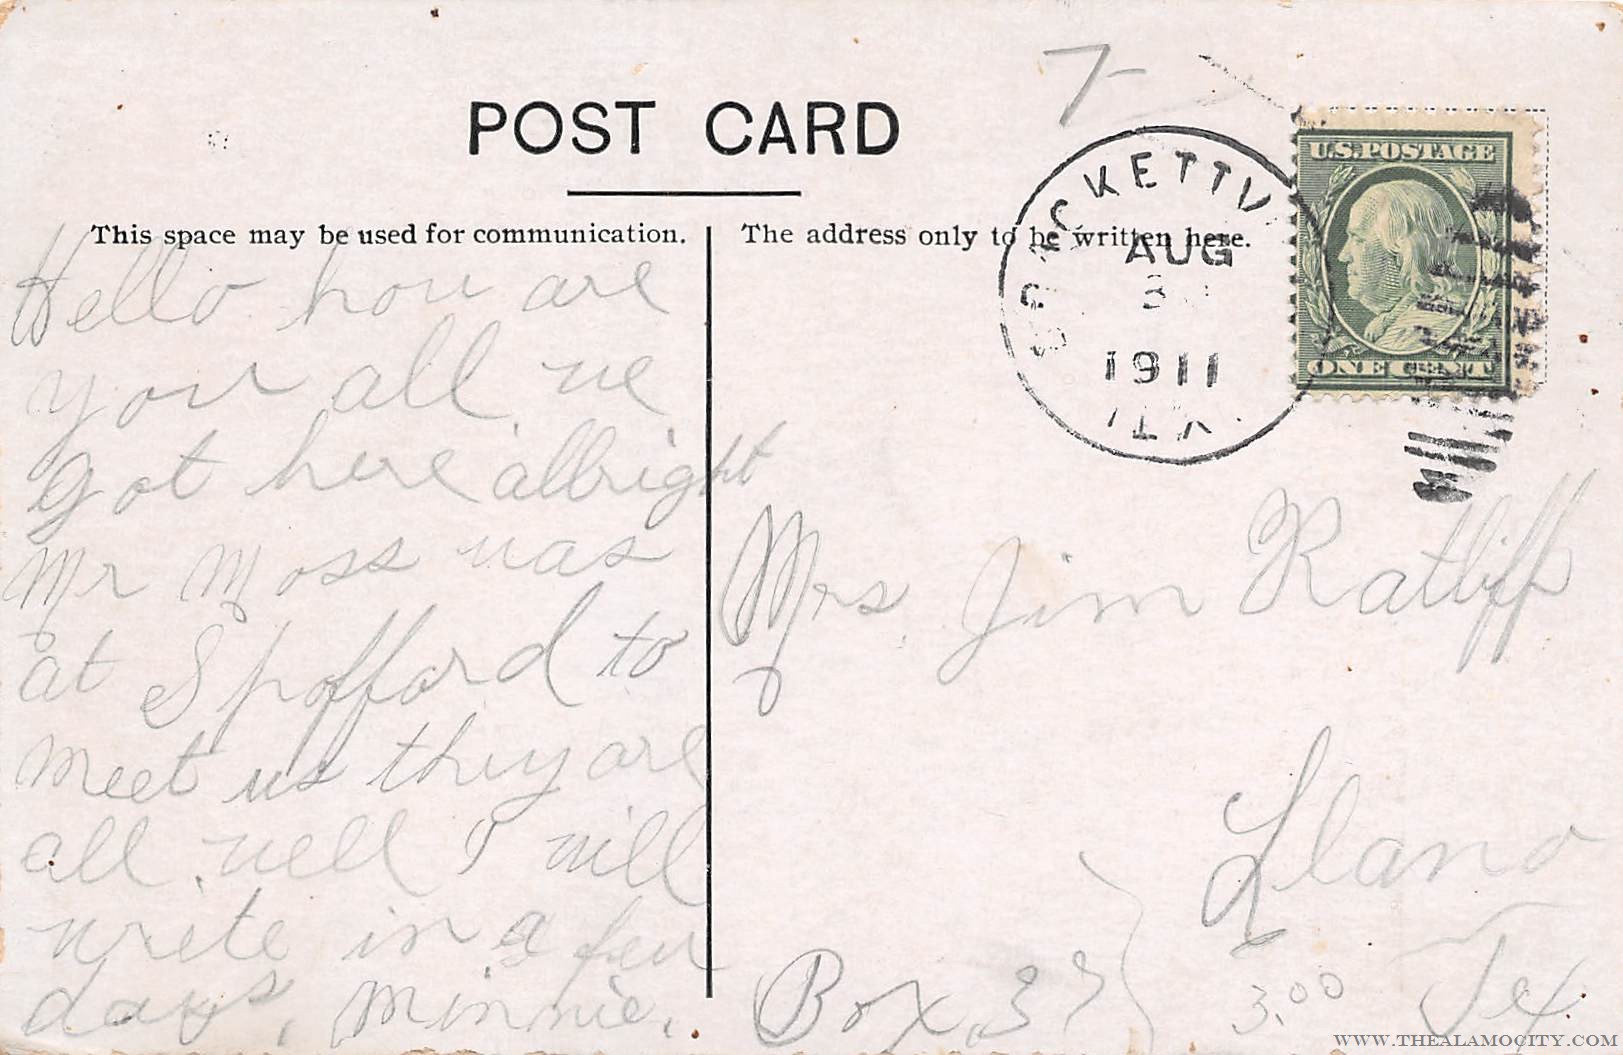 7-
POST CARD
This space may be used for communication.
The address only to be written here.
BRACKETTV
AUG
3
1911
TEX.
U.S. POSTAGE
ONE CENT
Hello how are
you all we
got here allright
Mr Moss was
at Spofford to
meet us they are
all well I will
write in a few
days, Minnie.
Mrs. Jim Ratliff
Llano
Tex
Box 37
3.00
WWW.THEALAMOCITY.COM